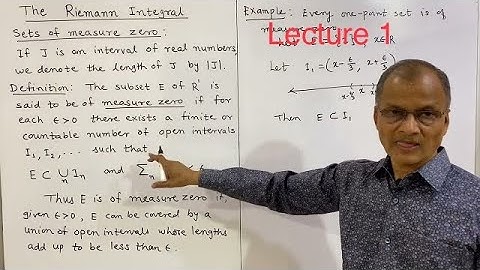 The Riemann Integral
Sets of measure zero:
If J is an interval of real numbers
we denote the length of J by |J|.
Definition: The subset E of R' is
said to be of measure zero if for
each ε>0 there exists a finite or
countable number of open intervals
I₁, I₂, ... such that
E ⊂ ∪ Iₙ and Σ < ε
n n
Thus E is of measure zero if,
given ε>0, E can be covered by a
union of open intervals whose lengths
add up to be less than ε.
Example: Every one-point set is of
measure
x∈R
Lecture 1
Let I₁ = (x - ε/3, x + ε/3)
x-ε/3 x x+ε/3
Then E ⊂ I₁